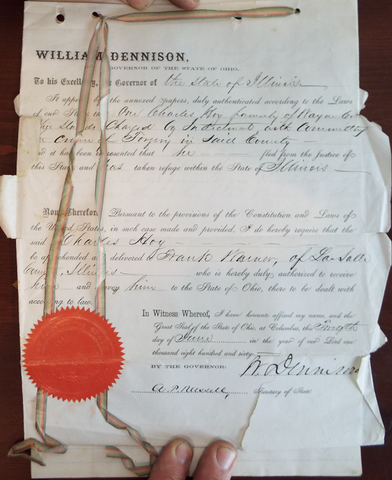 WILLIAM DENNISON,
GOVERNOR OF THE STATE OF OHIO,
To his Excellency, the Governor of the State of Illinois
It appears by the annexed papers, duly authenticated according to the Laws
of our State, One Charles Hoy formerly of
Stands Charged by Indictment with
Crime of Forgery in Said County
and it has been represented that he fled from the Justice of
this State, and has taken refuge within the State of Illinois
Now, Therefore, Pursuant to the provisions of the Constitution and Laws of
the United States, in such case made and provided, I do hereby require that the
said Charles Hoy
be apprehended and delivered to Frank Warner, of La Salle
County, Illinois who is hereby duly authorized to receive
him and convey him to the State of Ohio, there to be dealt with
according to law.
In Witness Whereof, I have hereunto affixed my name, and the
Great Seal of the State of Ohio, at Columbus, this
day of June in the year of our Lord one
thousand eight hundred and sixty
BY THE GOVERNOR: W. Dennison
A. P. Russell, Secretary of State